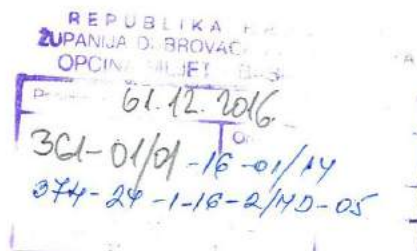 REPUBLIKA
ŽUPANIJA DUBROVAČ
OPĆINA MLJET
01.12.2016.
361-01/01-16-01/14
374-24-1-16-2/MD-05